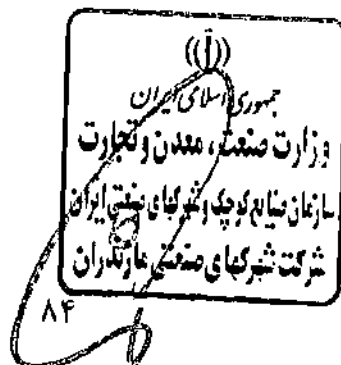 جمهوری اسلامی ایران
وزارت صنعت، معدن و تجارت
سازمان صنایع کوچک و شهرکهای صنعتی ایران
شرکت شهرکهای صنعتی مازندران
۸۴